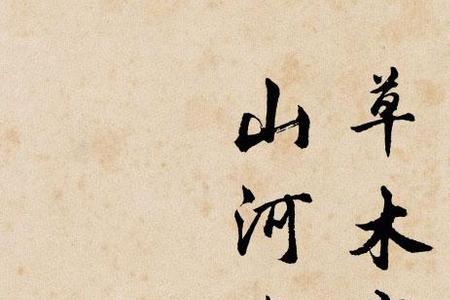 草木
山河